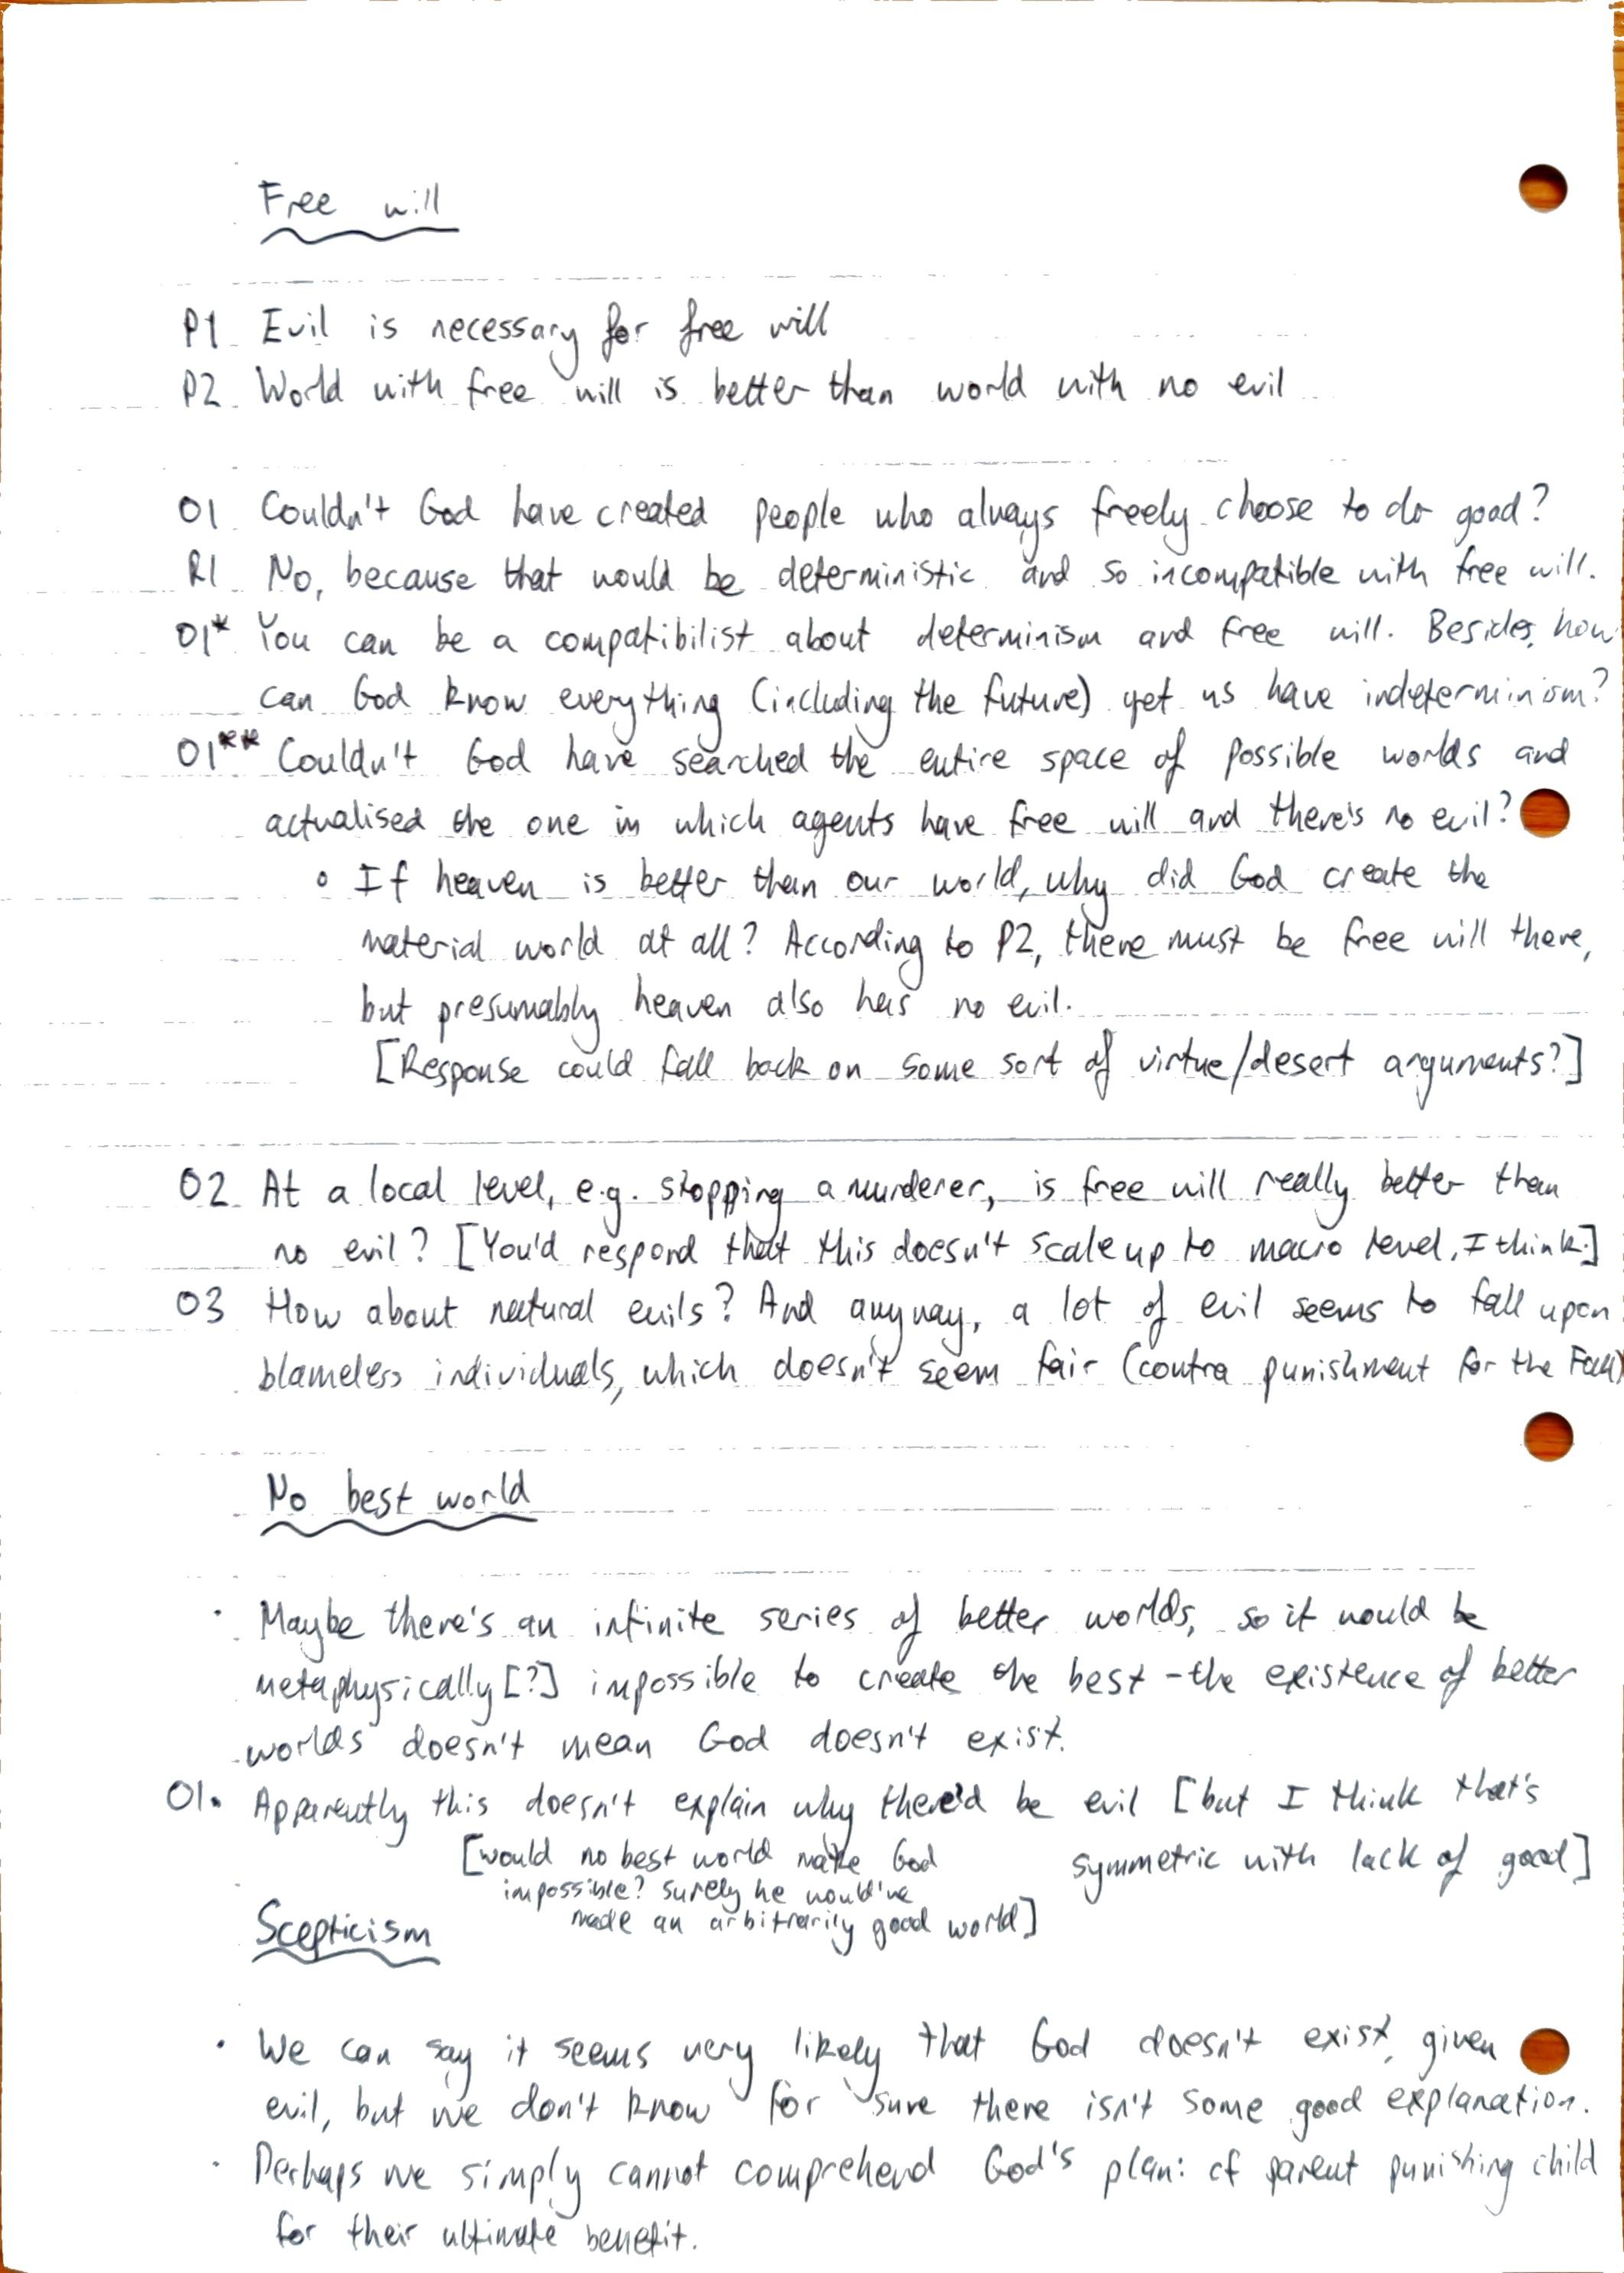 Free will
P1 Evil is necessary for free will
P2 World with free will is better than world with no evil
O1 Couldn't God have created people who always freely choose to do good?
R1 No, because that would be deterministic and so incompatible with free will.
O1* You can be a compatibilist about determinism and free will. Besides, how
can God know everything (including the future) yet us have indeterminism?
O1** Couldn't God have searched the entire space of possible worlds and
actualised the one in which agents have free will and there's no evil?
◦ If heaven is better than our world, why did God create the
material world at all? According to P2, there must be free will there,
but presumably heaven also has no evil.
[Response could fall back on some sort of virtue/desert arguments?]
O2 At a local level, e.g. stopping a murderer, is free will really better than
no evil? [You'd respond that this doesn't scale up to macro level, I think.]
O3 How about natural evils? And anyway, a lot of evil seems to fall upon
blameless individuals, which doesn't seem fair (contra punishment for the Fall)
No best world
• Maybe there's an infinite series of better worlds, so it would be
metaphysically [?] impossible to create the best - the existence of better
worlds doesn't mean God doesn't exist.
O1. Apparently this doesn't explain why there'd be evil [but I think that's
symmetric with lack of good]
[would no best world make God
impossible? Surely he would've
made an arbitrarily good world]
Scepticism
• We can say it seems very likely that God doesn't exist, given
evil, but we don't know for sure there isn't some good explanation.
• Perhaps we simply cannot comprehend God's plan: cf parent punishing child
for their ultimate benefit.